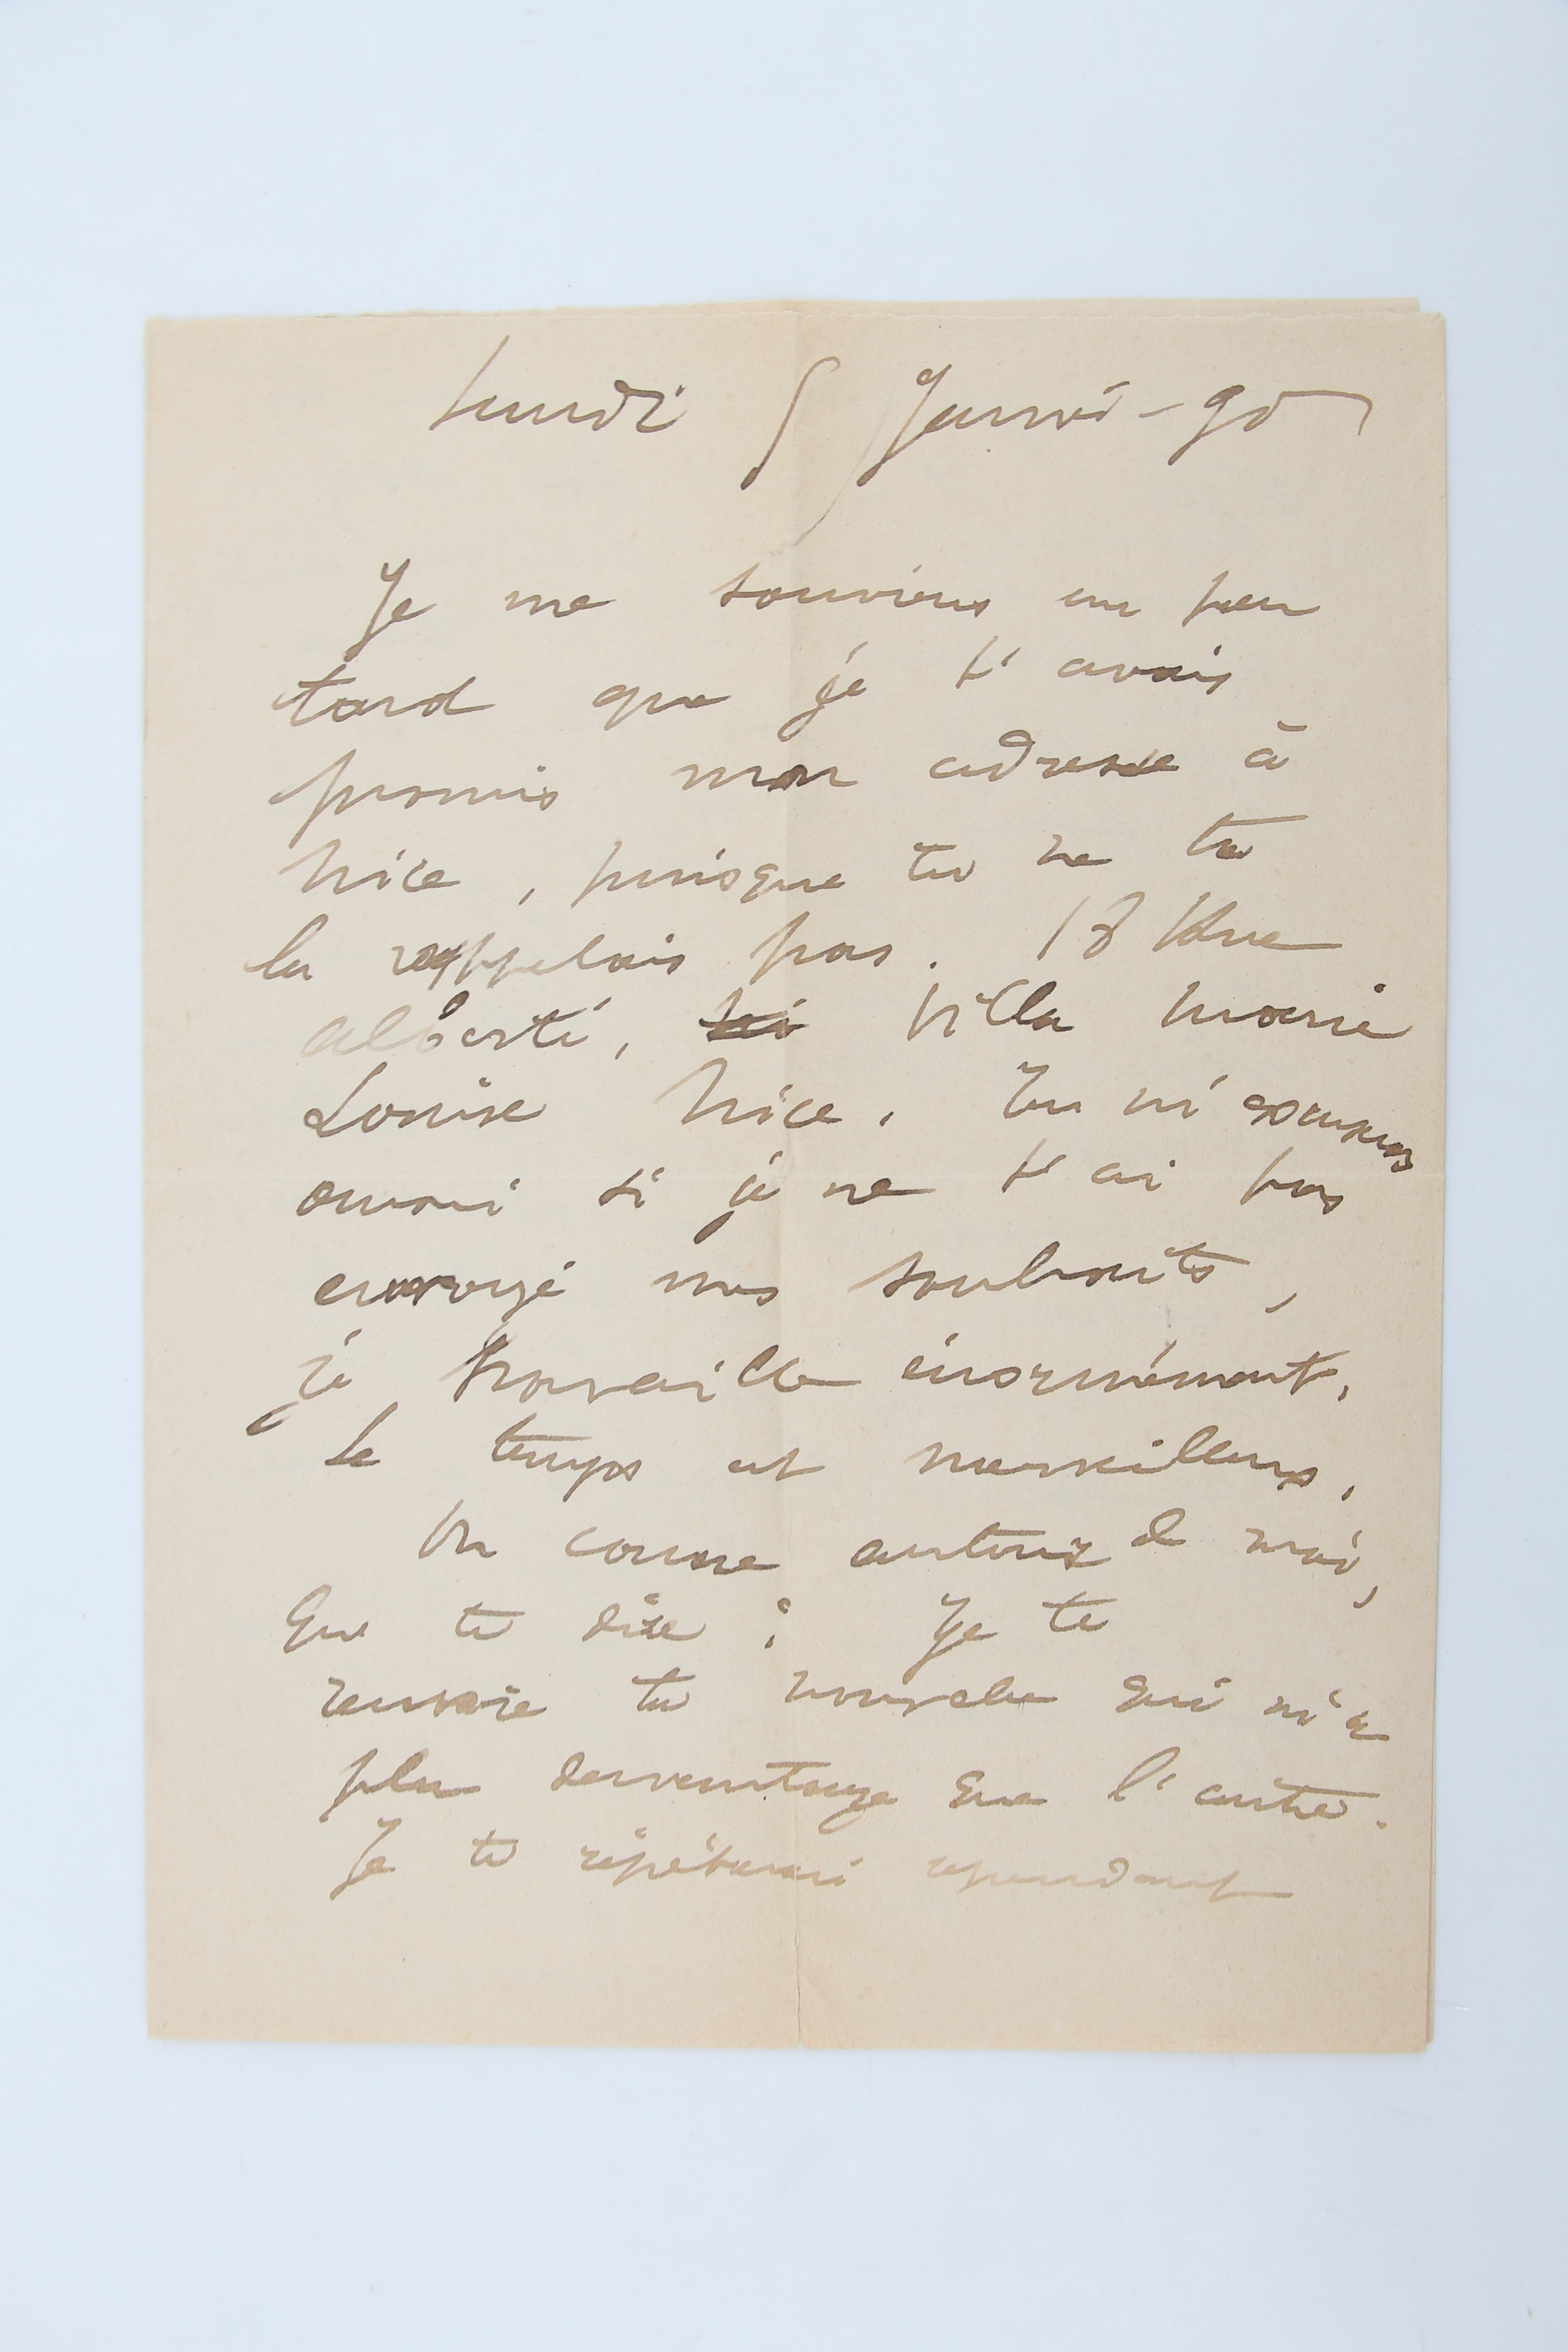 Lundi 5 Janvi - 90
Je me souviens un peu
tard que je t'avais
promis mon adresse à
Nice, puisque tu ne te
la rappelais pas. 18 Rue
Alberti, Villa Marie
Louise Nice. Tu m'excuses
aussi si je ne t'ai pas
envoyé mes souhaits,
je travaille énormément.
Le temps est merveilleux.
On cause autour de moi,
Que te dire ? Je te
renvoie ta nouvelle qui m'a
plu davantage que l'autre.
Je te répéterai cependant